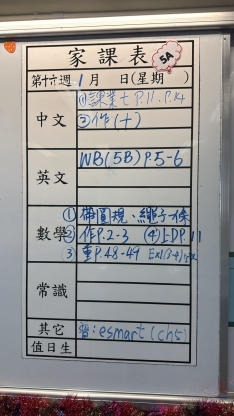 家課表
5A
第十六週 1月 日(星期 )
中文
①課業七 P.11-P.14
②作(十)
英文
WB(5B)P.5-6
數學
① 帶圓規、繩子一條
② 作P.2-3 ④ LDP.11
③ 重P.48-49
常識
其它
習:esmart(ch5)
值日生